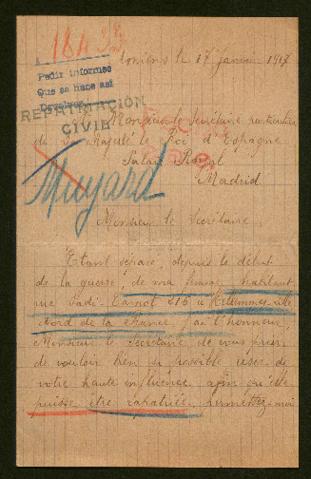 Londres le 17 Janvier 1917
Pedir informes
Que se hace así
Devolver
REPATRIACION
CIVIL
A Monsieur le Secrétaire particulier
de Sa Majesté le Roi d'Espagne
Palais Royal
Madrid
Muyard
Monsieur le Secrétaire
Etant séparé, depuis le début
de la guerre, de ma femme, habitant
rue Sadi-Carnot 216 à Hellemmes-Lille
Nord de la France, j'ai l'honneur,
Monsieur le Secrétaire de vous prier
de vouloir bien si possible user de
votre haute influence afin qu'elle
puisse être rapatriée. permettez-moi